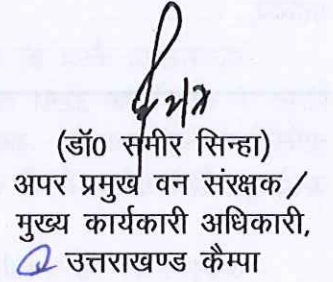 (डॉ0 समीर सिन्हा)
अपर प्रमुख वन संरक्षक /
मुख्य कार्यकारी अधिकारी,
उत्तराखण्ड कैम्पा